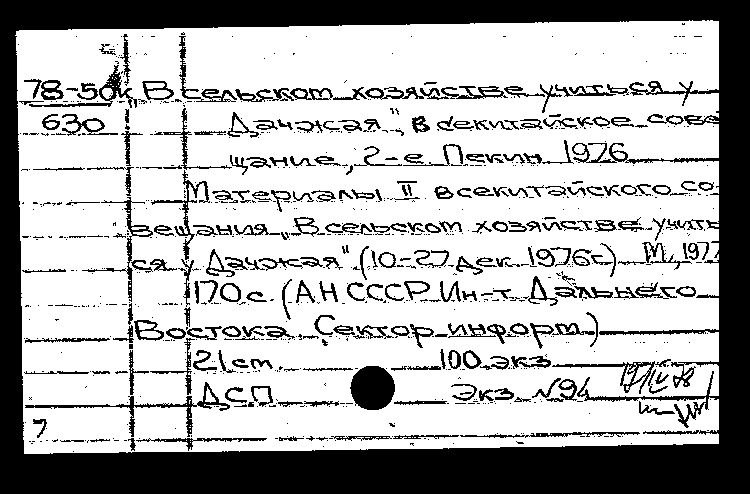 78-50к „В сельском хозяйстве учиться у
630 Дачжая", всекитайское сове-
щание, 2-е. Пекин. 1976
Материалы II всекитайского со-
вещания „В сельском хозяйстве учить-
ся у Дачжая" (10-27 дек. 1976г.) М., 1977
170с. (АН СССР. Ин-т Дальнего
Востока. Сектор информ.)
21 см. 100 экз
ДСП Экз. №94
7